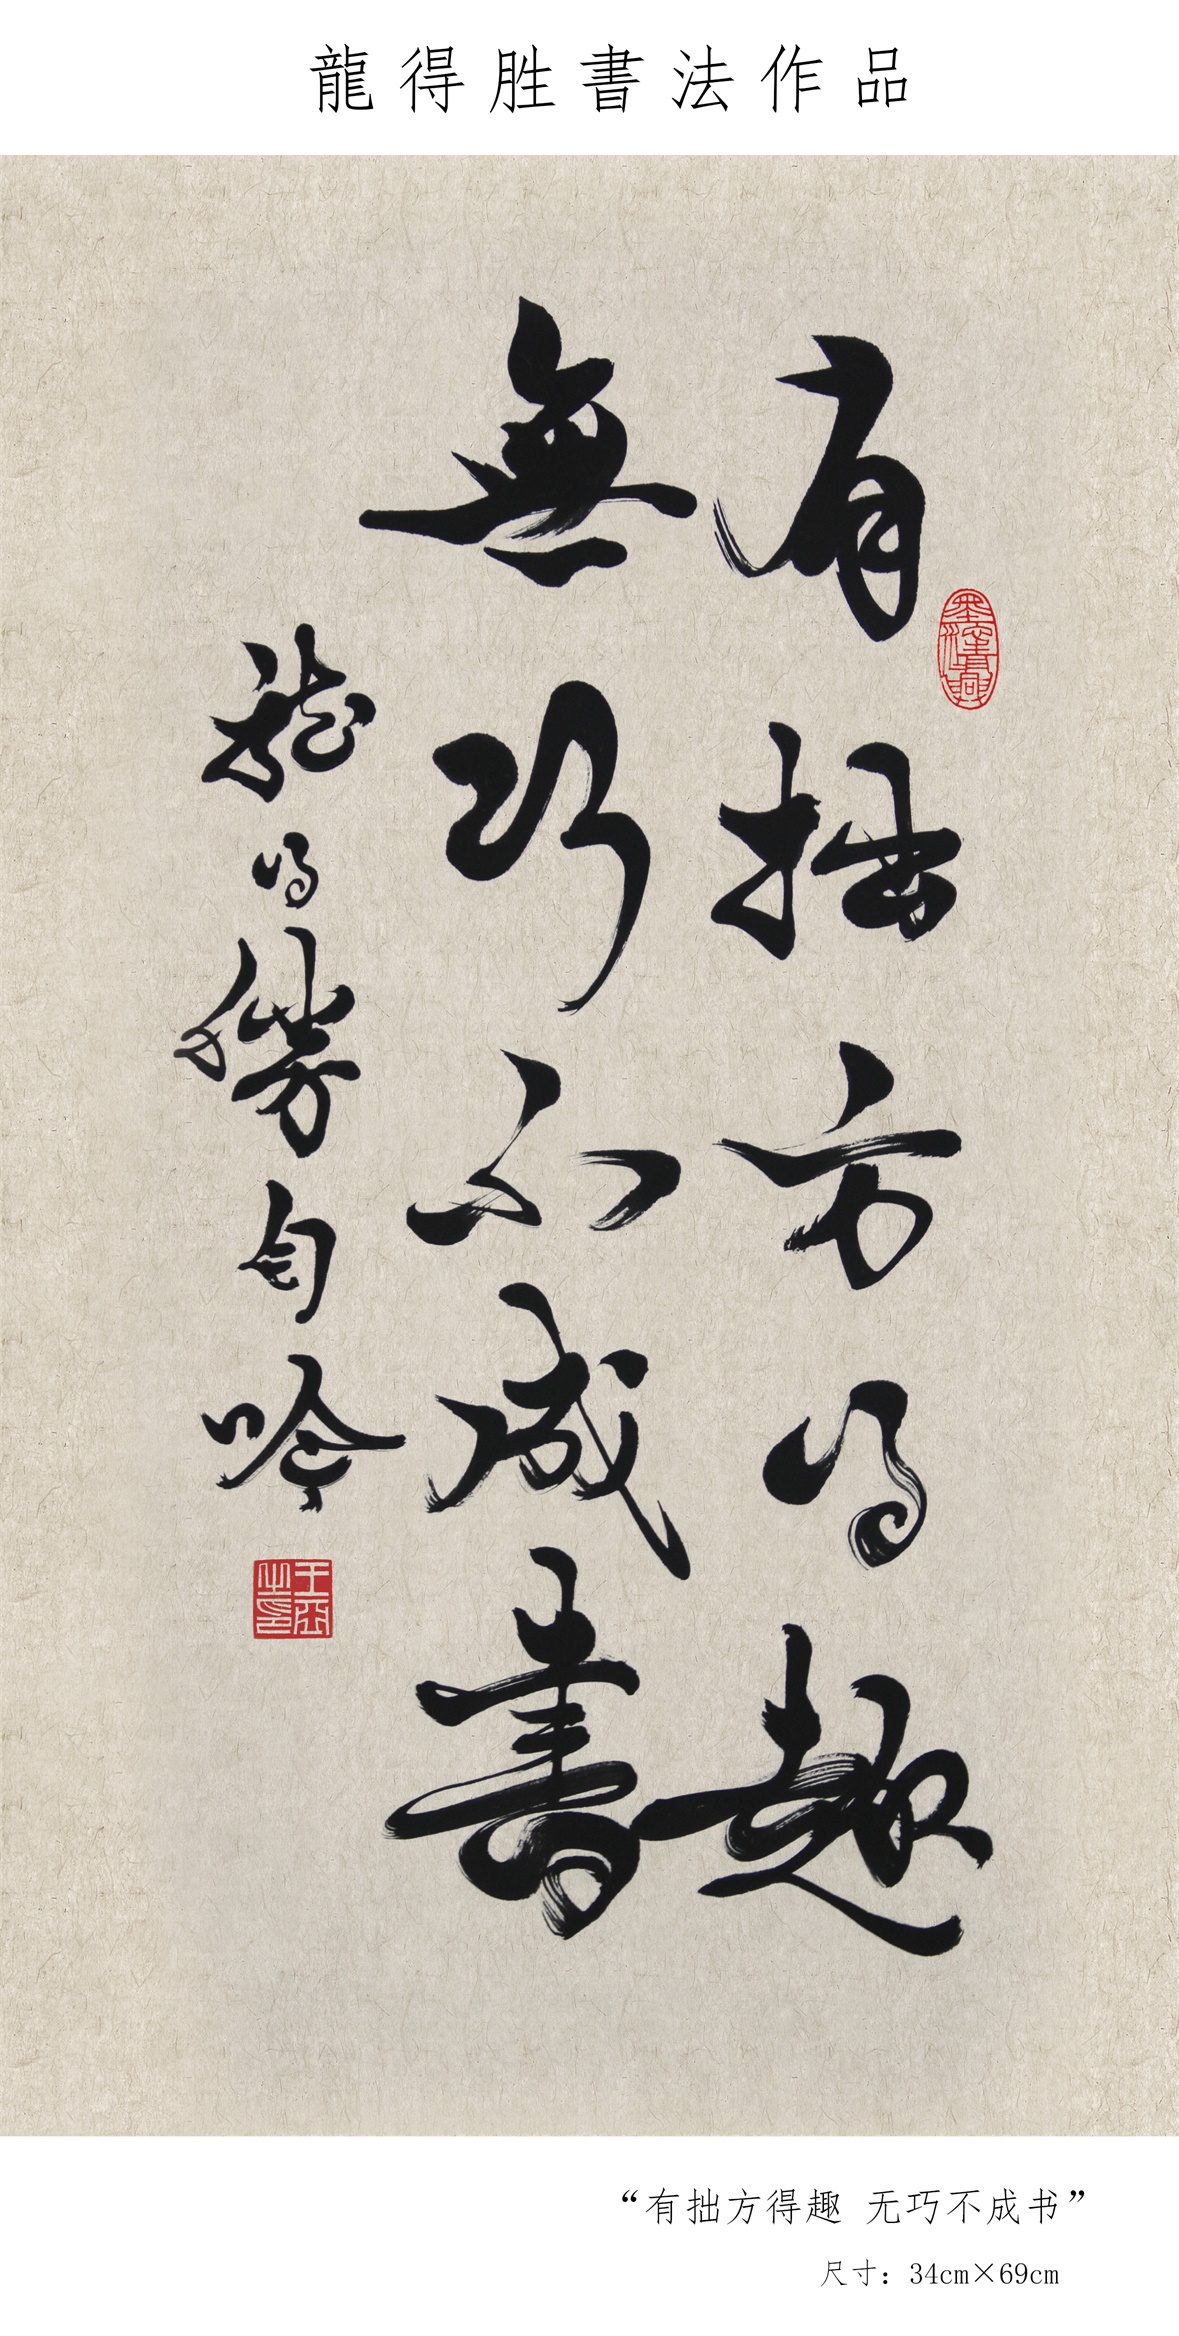 龍得胜書法作品
有拙方得趣
無巧不成書
龍得勝句吟
“有拙方得趣 无巧不成书”
尺寸：34cm×69cm